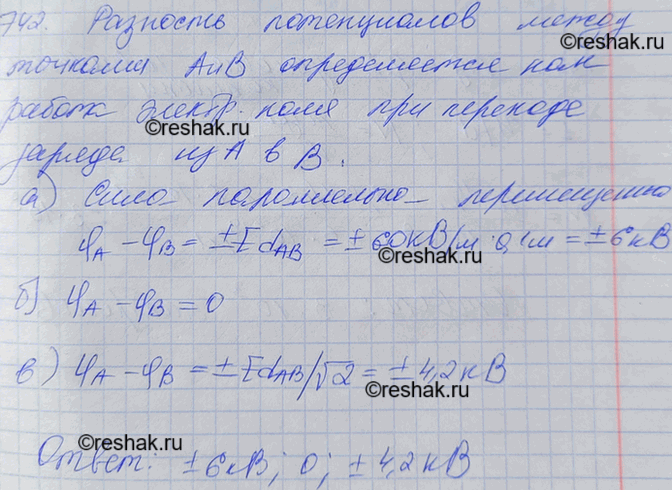 742. Разность потенциалов между
точками А и В определяется как
работа электр. поля при переходе
заряда из А в В.
а) Сила параллельно перемещению
φA − φB = ±E dAB = ±60кВ/м · 0,1м = ±6кВ
б) φA − φB = 0
в) φA − φB = ±E dAB/√2 = ±4,2кВ
Ответ: ±6кВ; 0; ±4,2кВ
©reshak.ru
©reshak.ru
©reshak.ru
©reshak.ru
©reshak.ru
©reshak.ru
©reshak.ru